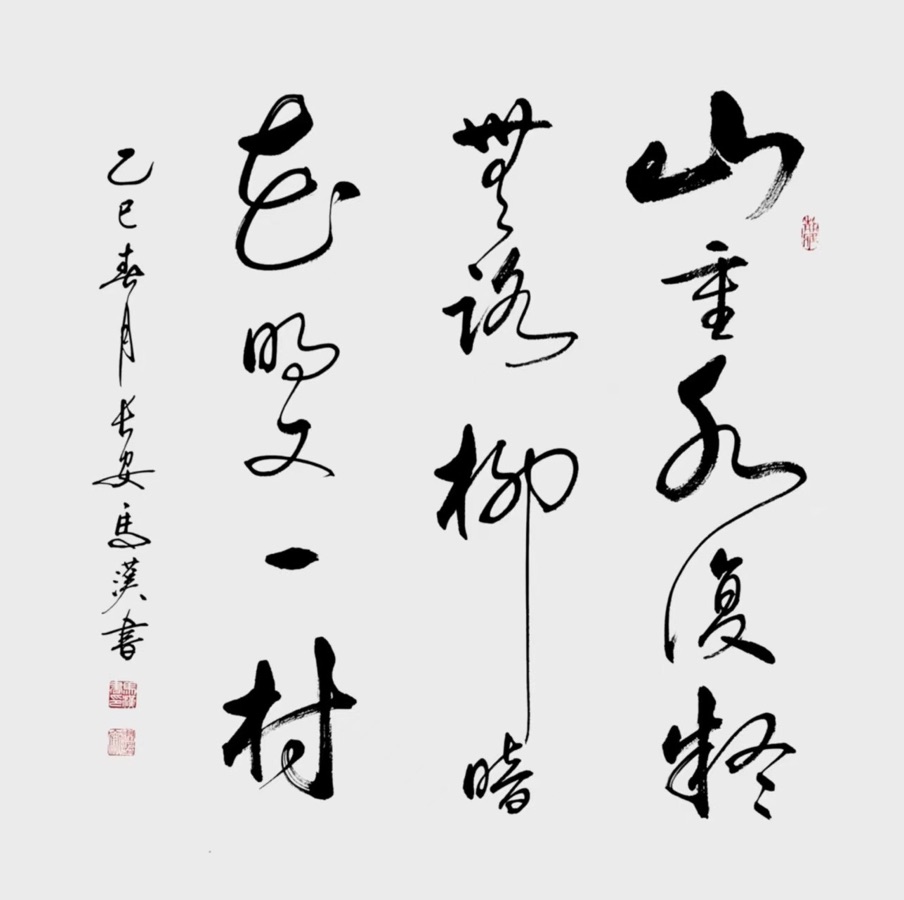 山重水復疑
無路柳暗
花明又一村
乙巳春月長安馬漢書